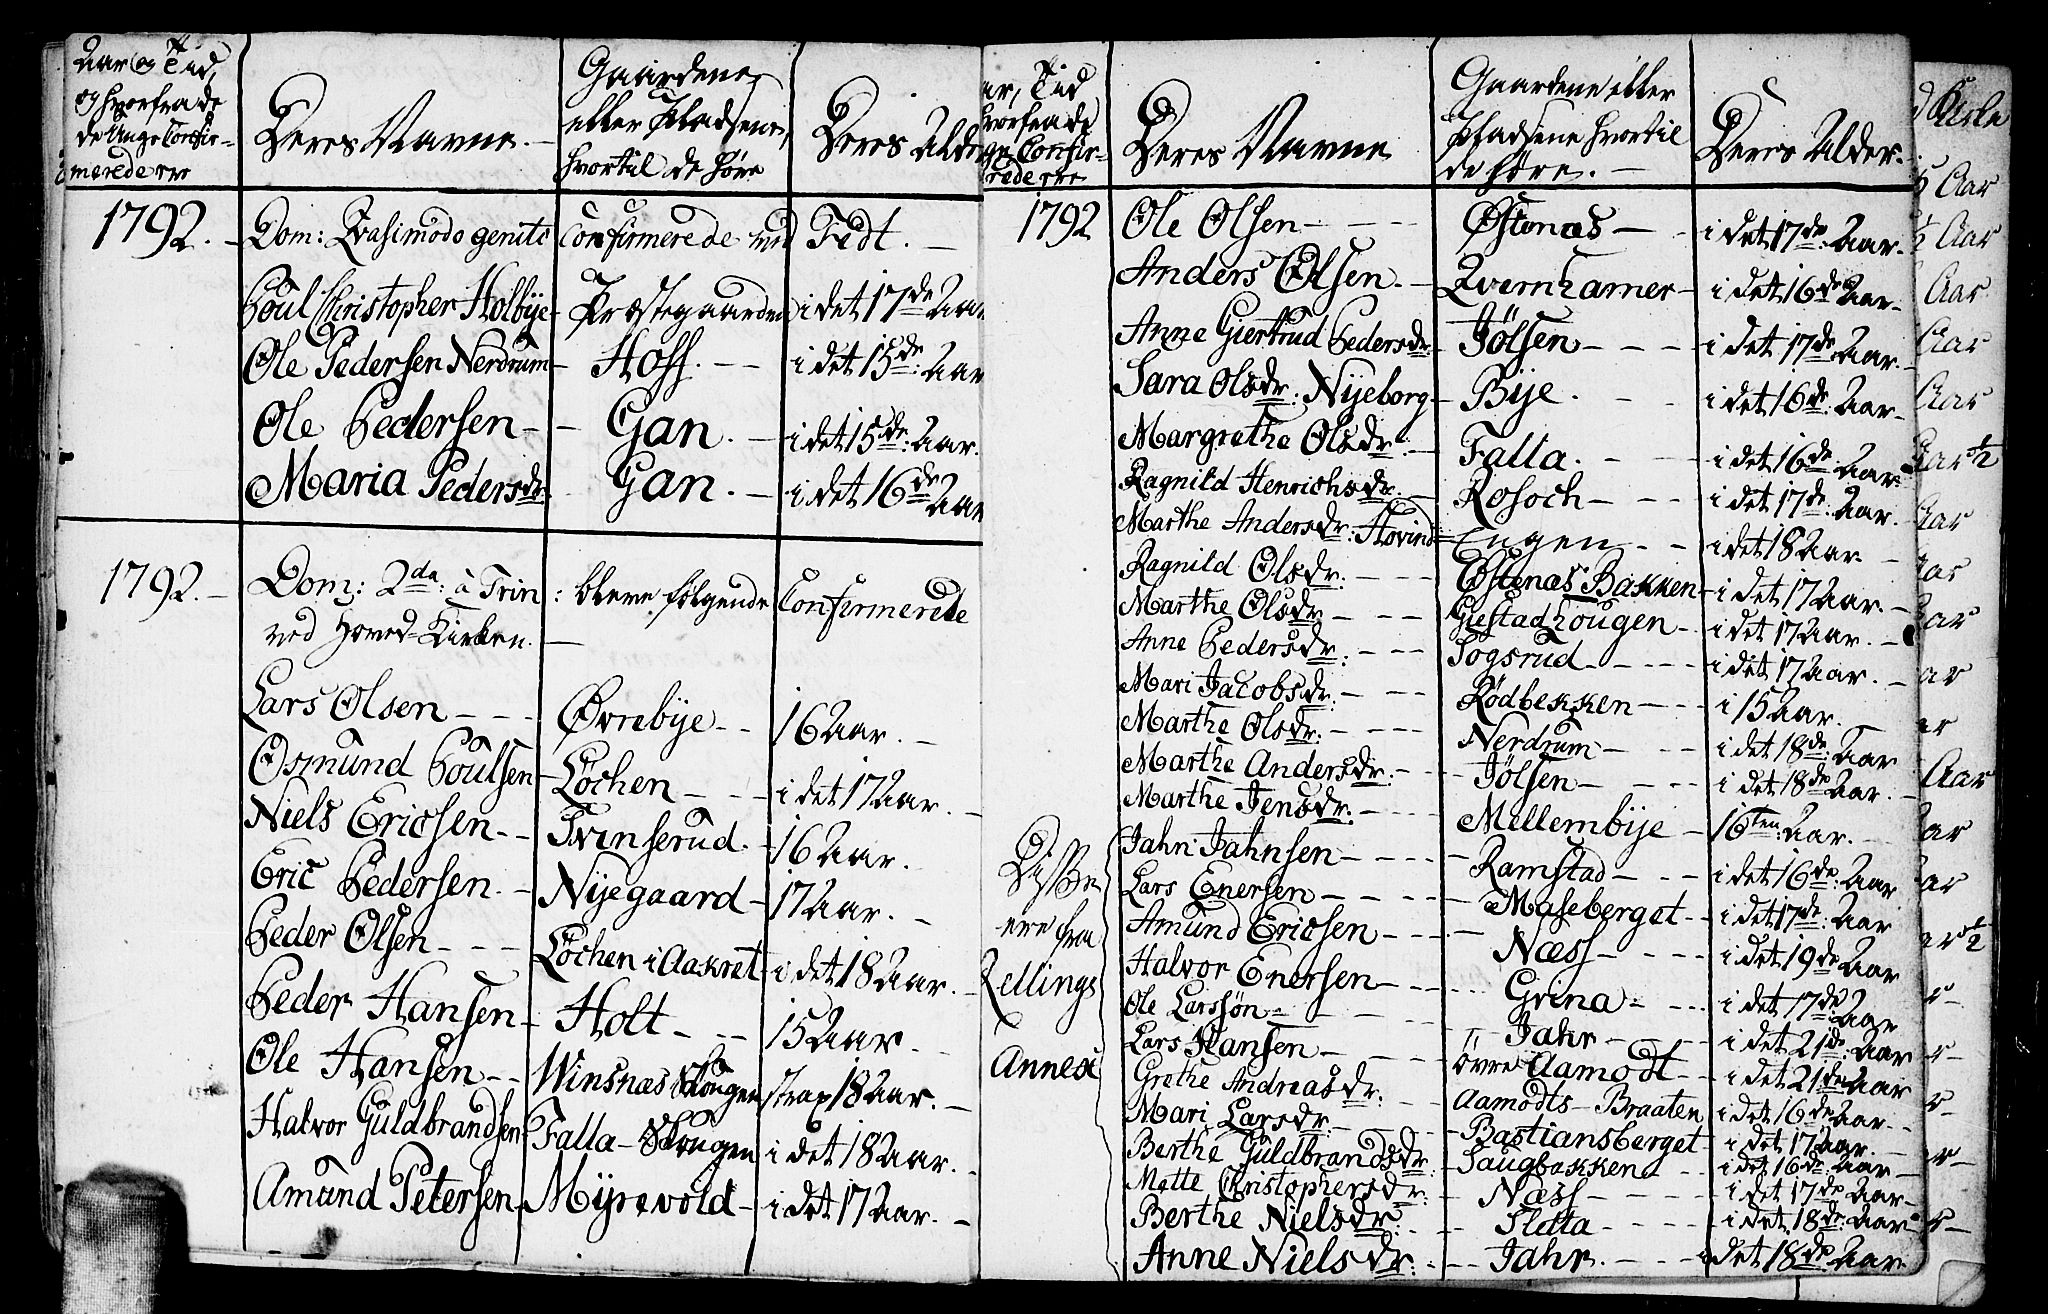 Aar og Tid,
og hvorfra de
de Unge Confir-
merede ere
Deres Navne.
Gaardene
eller Pladsene,
hvortil de høre
Deres Alde
1792. - Dom: Qvasimodo genite Confirmerede ved Fedt.
Poul Christopher Holbÿe - Præstegaarden i det 17de Aar
Ole Pedersen Nerdrum - Hoff. - - i det 15de: Aar
Ole Pedersen - - Gan. - i det 15de: Aar.
Maria Pedersdr - Gan. - i det 16de Aar
1792. - Dom: 2da: à Trin: bleve følgende Confirmerede
ved Hoved-Kirken. -
Lars Olsen - - - Øvrebÿe - - 16 Aar. -
Osmund Poulsen - Løchen - - - i det 17 Aar. -
Niels Ericsen - - Tvinserud. - 16 Aar.
Eric Pedersen. - Nÿegaard - 17 Aar. -
Peder Olsen - - - Løchen i Aakret - i det 18 Aar. -
Peder Hansen - Holt - - - 15 Aar - -
Ole Hansen - - Winsnæs Hougen strax 18 Aar. -
Halvor Guldbrandsen Falla - Skougen i det 18 Aar. -
Amund Petersen - Mÿrevold - i det 17 Aar. -
ar, Tid
hvorfra de
ge Confir-
rede ere
Deres Navne
Gaardene eller
Pladsene hvortil
de høre. -
Deres Alder.
1792 Ole Olsen - - - - Østenæs - - i det 17de: Aar.
Anders Olsen. - - Qvernhamer - i det 16de Aar -
Anne Giertrud Pedersdr: - Jølsen - - - - i det 17de Aar. -
Sara Olsdr: Nÿeborg - Bÿe. - - i det 16de: Aar -
Margrethe Olsdr: - Falla. - - - i det 16de: Aar -
Ragnild Henrichsdr: - Rosoch - - - i det 17de: Aar. -
Marthe Andersdr: Hovind = Engen - - i det 18 Aar. -
Ragnild Olsdr: - - - Østenæs Bakken - i det 17 Aar. -
Marthe Olsdr - - - Giestadhougen - i det 17 Aar. -
Anne Pedersdr: - - - Sogsrud - - - - i det 17 Aar. -
Mari Jacobsdr: - - - Rødbekken - - i 15 Aar. -
Marthe Olsdr: - - - Nerdrum - - - i det 18de: Aar
Marthe Andersdr: - - - Jølsen - - - i det 18de Aar. -
Marthe Jensdr. - - - Mellembÿe - 16ten: Aar. -
Disse
ere fra
Rellings
Annex
Jahn Jahnsen - - - - - Ramstad - - - i det 16de: Aar
Lars Enersen - - - - - Maseberget - - i det 17de: Aar
Amund Ericsen - - - - - Næss - - - - i det 19de Aar
Halvor Enersen - - - - Grina - - - i det 17de Aar
Ole Larssøn - - - - Jahr - - - - i det 21de: Aar
Lars Hansen - - - - øvre Aamodt - - i det 21de Aar
Grethe Andreasdr: - - Aamodts - Braaten i det 16de Aar. -
Mari Larsdr: - - - - Bastiansberget - i det 17 Aar. -
Berthe Guldbrandsdr: - Saugbakken - - i det 16de Aar -
Mette Christophersdr: - - Næss - - - - i det 17de Aar -
Berthe Nielsdr: - - - Flata - - - - i det 18de: Aar -
Anne Nielsdr: - - - Jahr. - - - i det 18de Aar